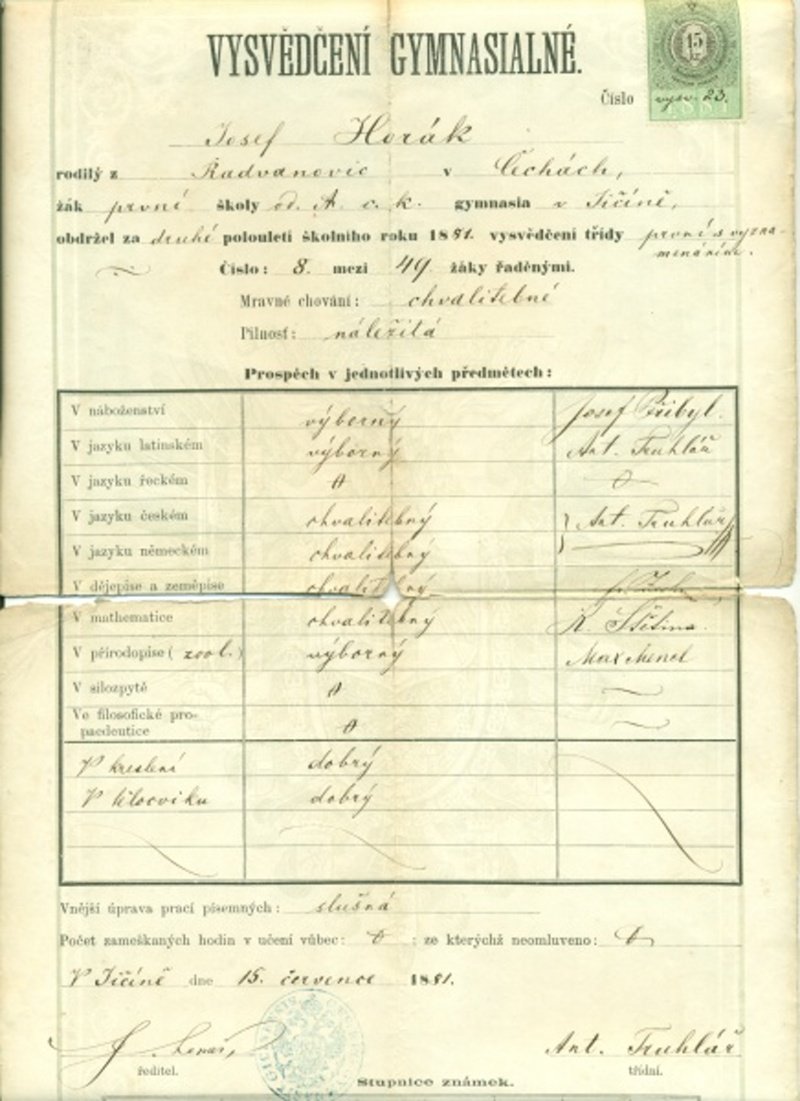 VYSVĚDČENÍ GYMNASIALNÉ.
15 kr
Číslo vysv. 23.
Josef Horák
rodilý z Radvanovic v Čechách,
žák první školy od. A c. k. gymnasia v Jičíně,
obdržel za druhé polouletí školního roku 1881. vysvědčení třídy první s vyzna-
menáním.
Číslo: 8. mezi 49 žáky řaděnými.
Mravné chování: chvalitebné
Pilnosť: náležitá
Prospěch v jednotlivých předmětech:
V náboženství výborný Josef Přibyl.
V jazyku latinském výborný Ant. Truhlář
V jazyku řeckém 0
V jazyku českém chvalitebný Ant. Truhlář
V jazyku německém chvalitebný
V dějepise a zeměpise chvalitebný
V mathematice chvalitebný K. Štětina.
V přírodopise (zool.) výborný
V silozpytě 0
Ve filosofické pro-
paedeutice 0
V kreslení dobrý
V tělocviku dobrý
Vnější úprava prací písemných: slušná
Počet zameškaných hodin v učení vůbec: 0 : ze kterýchž neomluveno: 0
V Jičíně dne 15. července 1881.
Ant. Truhlář
ředitel. třídní.
Stupnice známek.